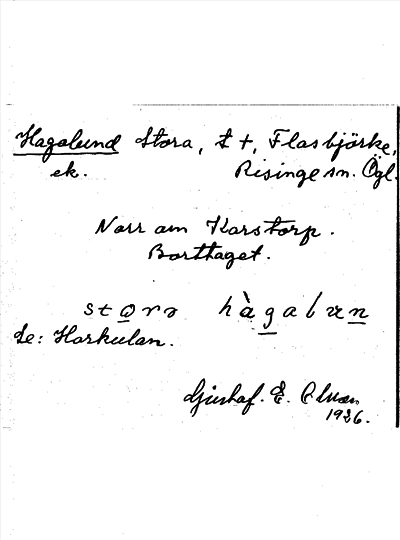 Hagalund Stora, t +, Flasbjörke,
ek. Risinge sn. Ögl.
Norr om Karstorp.
Borttaget.
storə hàgalun
Se: Harkulan.
1926.